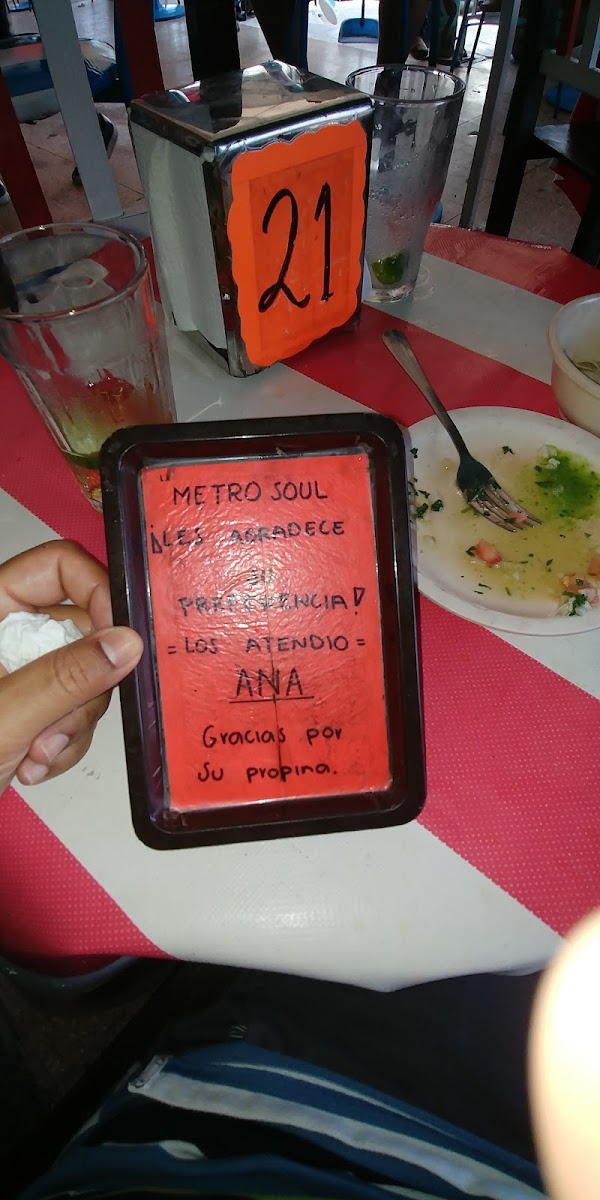 21
"METRO SOUL
¡LES AGRADECE
SU
PREFERENCIA!
= LOS ATENDIO =
ANA
Gracias por
Su propina.